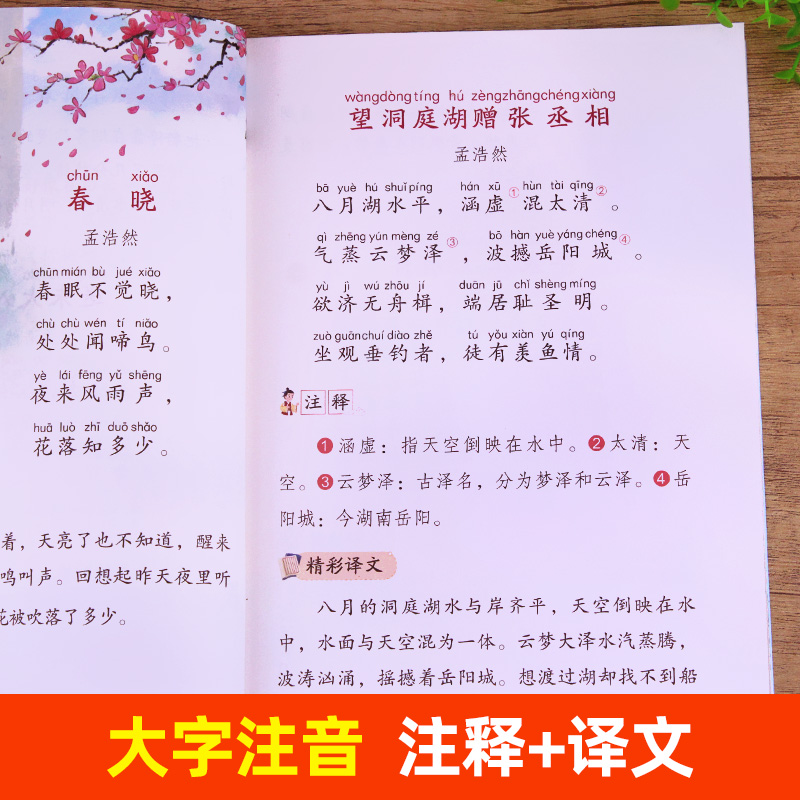 chūn xiǎo
春 晓
孟浩然
chūn mián bù jué xiǎo
春眠不觉晓，
chù chù wén tí niǎo
处处闻啼鸟。
yè lái fēng yǔ shēng
夜来风雨声，
huā luò zhī duō shǎo
花落知多少。
着，天亮了也不知道，醒来
鸣叫声。回想起昨天夜里听
花被吹落了多少。
wàng dòng tíng hú zèng zhāng chéng xiàng
望洞庭湖赠张丞相
孟浩然
bā yuè hú shuǐ píng hán xū hùn tài qīng
八月湖水平，涵虚①混太清②。
qì zhēng yún mèng zé bō hàn yuè yáng chéng
气蒸云梦泽③，波撼岳阳城④。
yù jì wú zhōu jí duān jū chǐ shèng míng
欲济无舟楫，端居耻圣明。
zuò guān chuí diào zhě tú yǒu xiàn yú qíng
坐观垂钓者，徒有羡鱼情。
注释
❶涵虚：指天空倒映在水中。❷太清：天
空。❸云梦泽：古泽名，分为梦泽和云泽。❹岳
阳城：今湖南岳阳。
精彩译文
八月的洞庭湖水与岸齐平，天空倒映在水
中，水面与天空混为一体。云梦大泽水汽蒸腾，
波涛汹涌，摇撼着岳阳城。想渡过湖却找不到船
大字注音 注释+译文